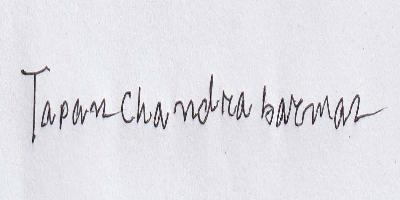 Tapan Chandra barman